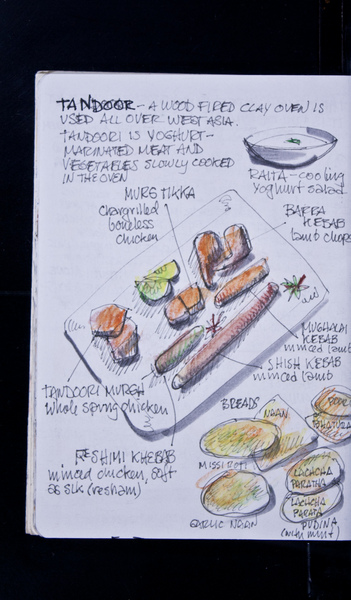 TANDOOR - A WOOD FIRED CLAY OVEN IS
USED ALL OVER WEST ASIA.
TANDOORI IS YOGHURT-
MARINATED MEAT AND
VEGETABLES SLOWLY COOKED
IN THE OVEN
RAITA - cooling
Yoghurt salad
MURG TIKKA
chargrilled
boneless
chicken
BARRA
KEBAB
lamb chops
MUGHALAI
KEBAB
minced lamb
SHISH KEBAB
minced lamb
TANDOORI MURGH
whole spring chicken
RESHIMI KHEBAB
minced chicken, soft
as silk (resham)
BREADS
NAAN
BHATURA
MISSI ROTI
LACHCHA
PARATHA
LACHCHA
PARATA
PUDINA
(with mint)
GARLIC NAAN